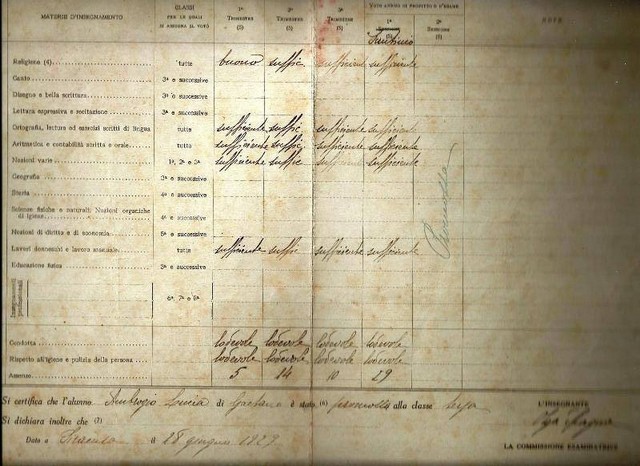 MATERIE D'INSEGNAMENTO CLASSI PER LE QUALI SI ASSEGNA IL VOTO 1° TRIMESTRE (3) 2° TRIMESTRE (3) 3° TRIMESTRE (3) VOTO ANNUO DI PROFITTO O D'ESAME NOTE
1ª (5) 2ª SESSIONE (5)
Religione (4) tutte buono suffic sufficient sufficiente
Canto 3ª e successive
Disegno e bella scrittura 3ª e successive
Lettura espressiva e recitazione 3ª e successive
Ortografia, lettura ed esercizi scritti di lingua tutte sufficiente suffic sufficiente sufficiente
Aritmetica e contabilità scritta e orale tutte sufficiente suffic sufficiente sufficiente
Nozioni varie 1ª, 2ª e 3ª sufficiente suffic sufficiente sufficiente
Geografia e successive
Storia e successive
Scienze fisiche e naturali Nozioni organiche di igiene e successive
Nozioni di diritto e di economia 5ª e successive
Lavori donneschi e lavoro manuale tutte sufficiente suffic sufficiente sufficiente
Educazione fisica 3ª e successive
Insegnamenti professionali 6ª, 7ª e 8ª
Promossa
Condotta lodevole lodevole lodevole lodevole
Rispetto all'igiene e pulizia della persona lodevole lodevole lodevole lodevole
Assenze 5 14 10 29
Si certifica che l'alunno Ambrogio Lucia di Gaetano è stato (6) promossa alla classe L'INSEGNANTE
Si dichiara inoltre che (7)
Data a il 28 giugno 1929 LA COMMISSIONE ESAMINATRICE